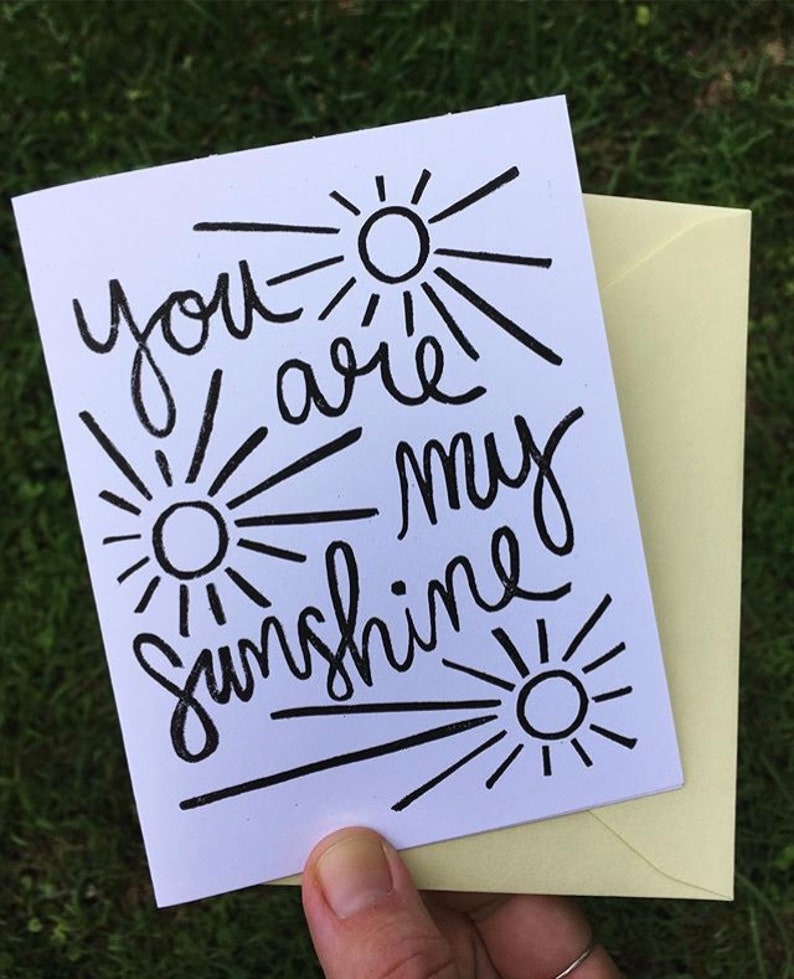 you
are
my
sunshine